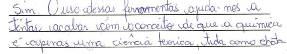 Sim. O uso dessas ferramentas ajuda-nos a
tentar acabar com o conceito de que a química
é apenas uma ciência teórica, tida como chata